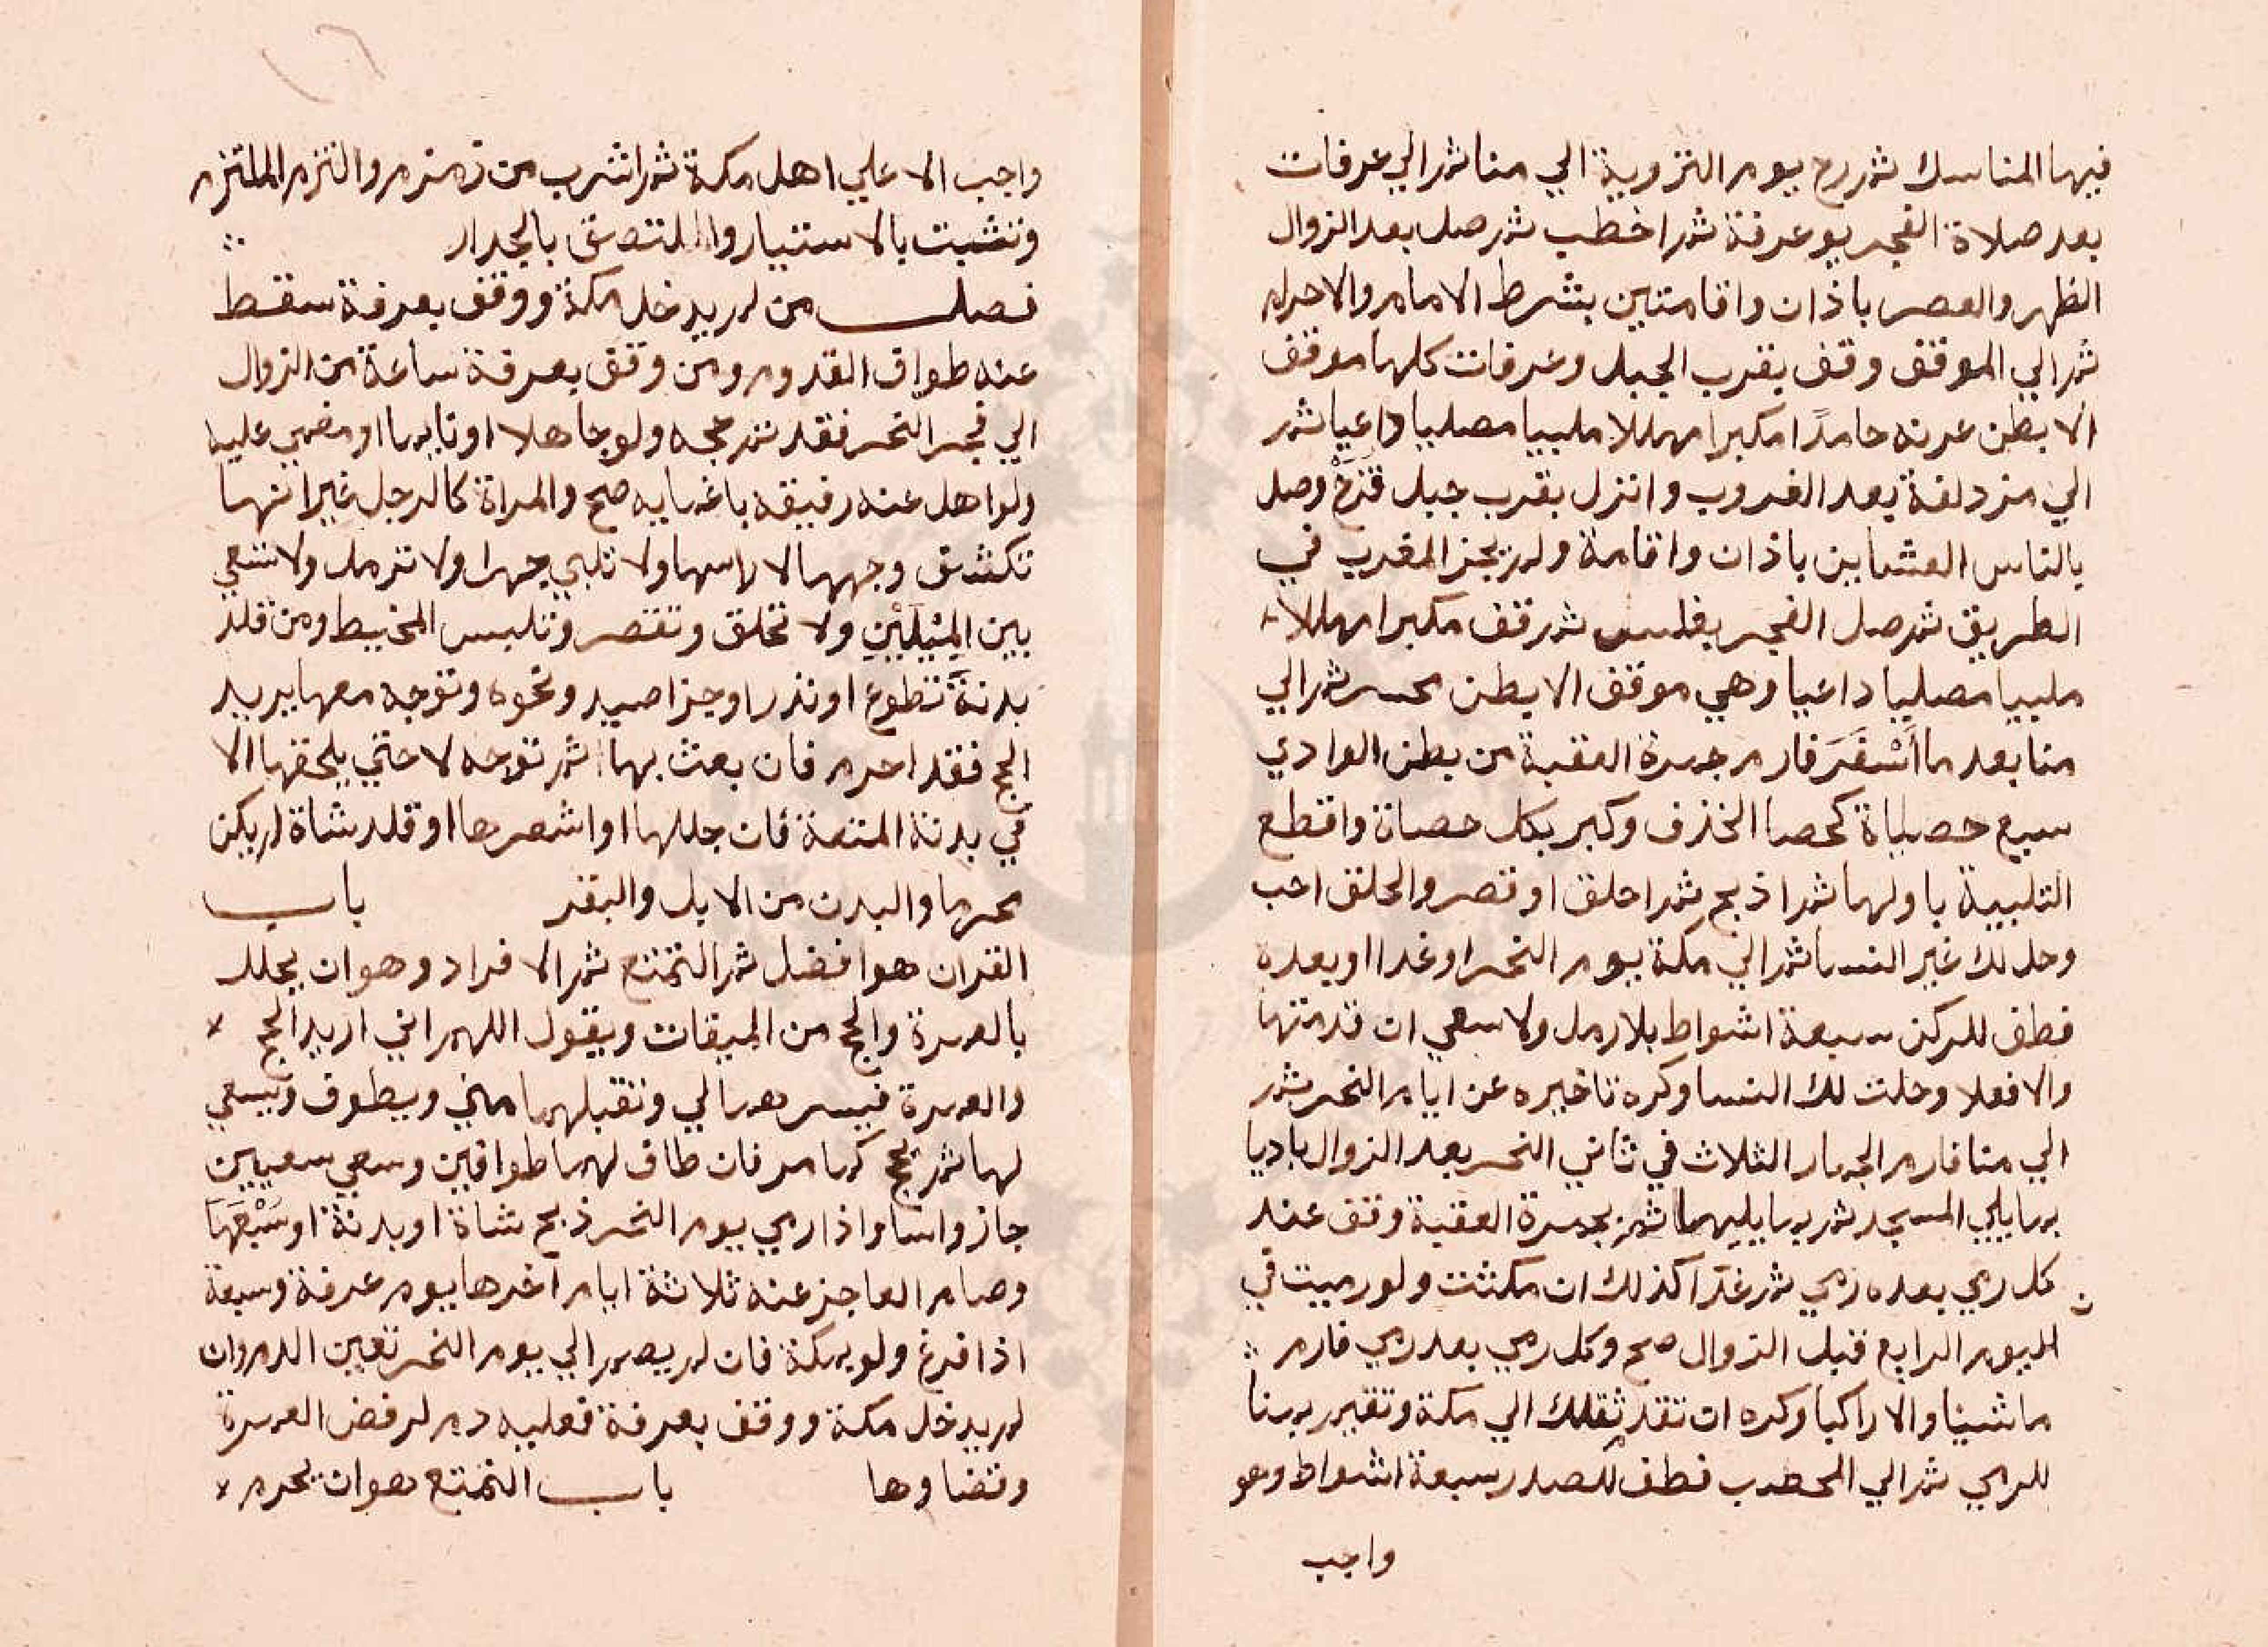 فيها المناسك ثم رح يوم التروية الي منا ثم الي عرفات
بعد صلاة الفجر يو عرفة ثم اخطب ثم صل بعد الزوال
الظهر والعصر باذان واقامتين بشرط الامام والاحرام
ثم الي الموقف وقف بقرب الجبل وعرفات كلها موقف
الا بطن عرنه حامدًا مكبرا مهللا ملبيا مصليا داعيا ثم
الي مزدلفة بعد الغروب وانزل بقرب جبل قزح وصل
بالناس العشاين باذان واقامة ولم يجز المغرب في
الطريق ثم صل الفجر بغلس ثم قف مكبرا مهللا
ملبيا مصليا داعيا وهي موقف الا بطن محسر ثم الي
منا بعد ما أَسْفَرَ فارم جمرة العقبة من بطن الوادي
سبع حصياة كحصا الخذف وكبر بكل حصاة واقطع
التلبية باولها ثم اذبح ثم احلق او قصر والحلق احب
وحل لك غير النسا ثم الي مكة يوم النحر او غدا او بعده
فطف للركن سبعة اشواط بلا رمل ولا سعي ان قدمتها
والا فعلا وحلت لك النسا وكره تاخيره عن ايام النحر ثم
الي منا فارم الجمار الثلاث في ثاني النحر بعد الزوال باديا
بما يلي المسجد ثم بما يليهما ثم بجمرة العقبة وقف عند
كل رمي بعده رمي ثم غدًا كذلك ان مكثت ولو رميت في
اليوم الرابع قبل الزوال صح وكل رمي بعد رمي فارم
ماشيا والا راكبا وكره ان تقد ثقلك الي مكة وتقيم بمنا
للرمي ثم الي المحصب فطف للصدر سبعة اشواط وهو
واجب
واجب الا علي اهل مكة ثم اشرب من زمزم والتزم الملتزم
وتشبت بالاستيار والتصق بالجدار
فصل من لم يدخل مكة ووقف بعرفة سقط
عنه طواف القدوم ومن وقف بعرفة ساعة من الزوال
الي فجر النحر فقد تم حجه ولو جاهلا او نايما او مغمي عليه
ولو اهل عنه رفيقه باغمايه صح والمراة كالرجل غير انها
تكشف وجهها لا راسها ولا تلبي جهرا ولا ترمل ولا تسعي
بين الميلين ولا تحلق وتقصر وتلبس المخيط ومن قلد
بدنة تطوع او نذر او جزا صيد ونحوه وتوجه معها يريد
الحج فقد احرم فان بعث بها ثم توجه لا حتي يلحقها الا
في بدنة المتعة فان جللها او اشعرها او قلد شاة لم يكن
محرما والبدن من الابل والبقر باب
القران هو افضل ثم التمتع ثم الافراد وهو ان يهلل
بالعمرة والحج من الميقات ويقول اللهم اني اريد الحج
والعمرة فيسرهما لي وتقبلهما مني ويطوف ويسعي
لها ثم يحج كما مر فان طاف لهما طوافين وسعي سعيين
جاز واسا واذا رمي يوم النحر ذبح شاة او بدنة او سُبْعَهَا
وصام العاجز عنه ثلاثة ايام آخرها يوم عرفة وسبعة
اذا فرغ ولو بمكة فان لم يصم الي يوم النحر تعين الدم وان
لم يدخل مكة ووقف بعرفة فعليه دم لرفض العمرة
وقضاوها باب التمتع هو ان يحرم